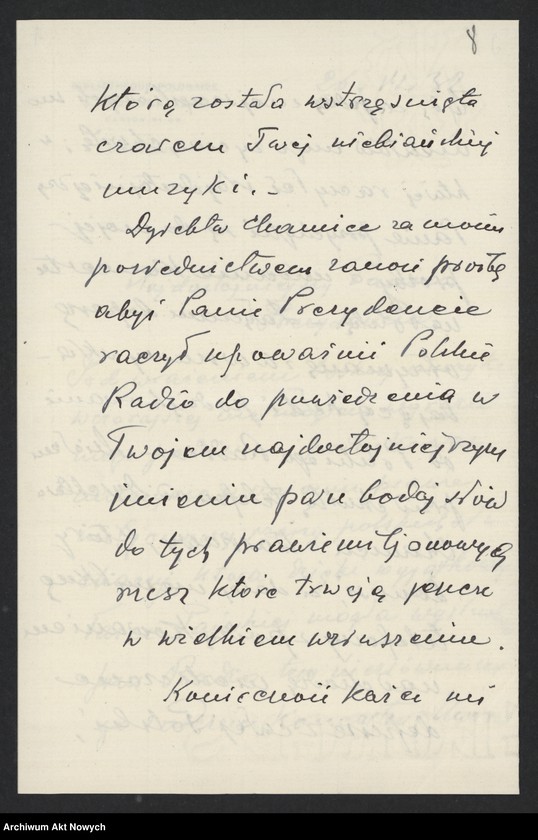 8
którą została wstrząśnięta
czarem Twej niebiańskiej
muzyki. –
Dyrektor Chamiec za moim
pośrednictwem zanosi prośbę
abyś Panie Prezydencie
raczył upoważnić Polskie
Radio do powiedzenia w
Twojem najdostojniejszym
imieniu paru bodaj słów
do tych prawie miljonowych
rzesz które trwają jeszcze
w wielkiem wzruszeniu.
Konieczność każe mi
Archiwum Akt Nowych